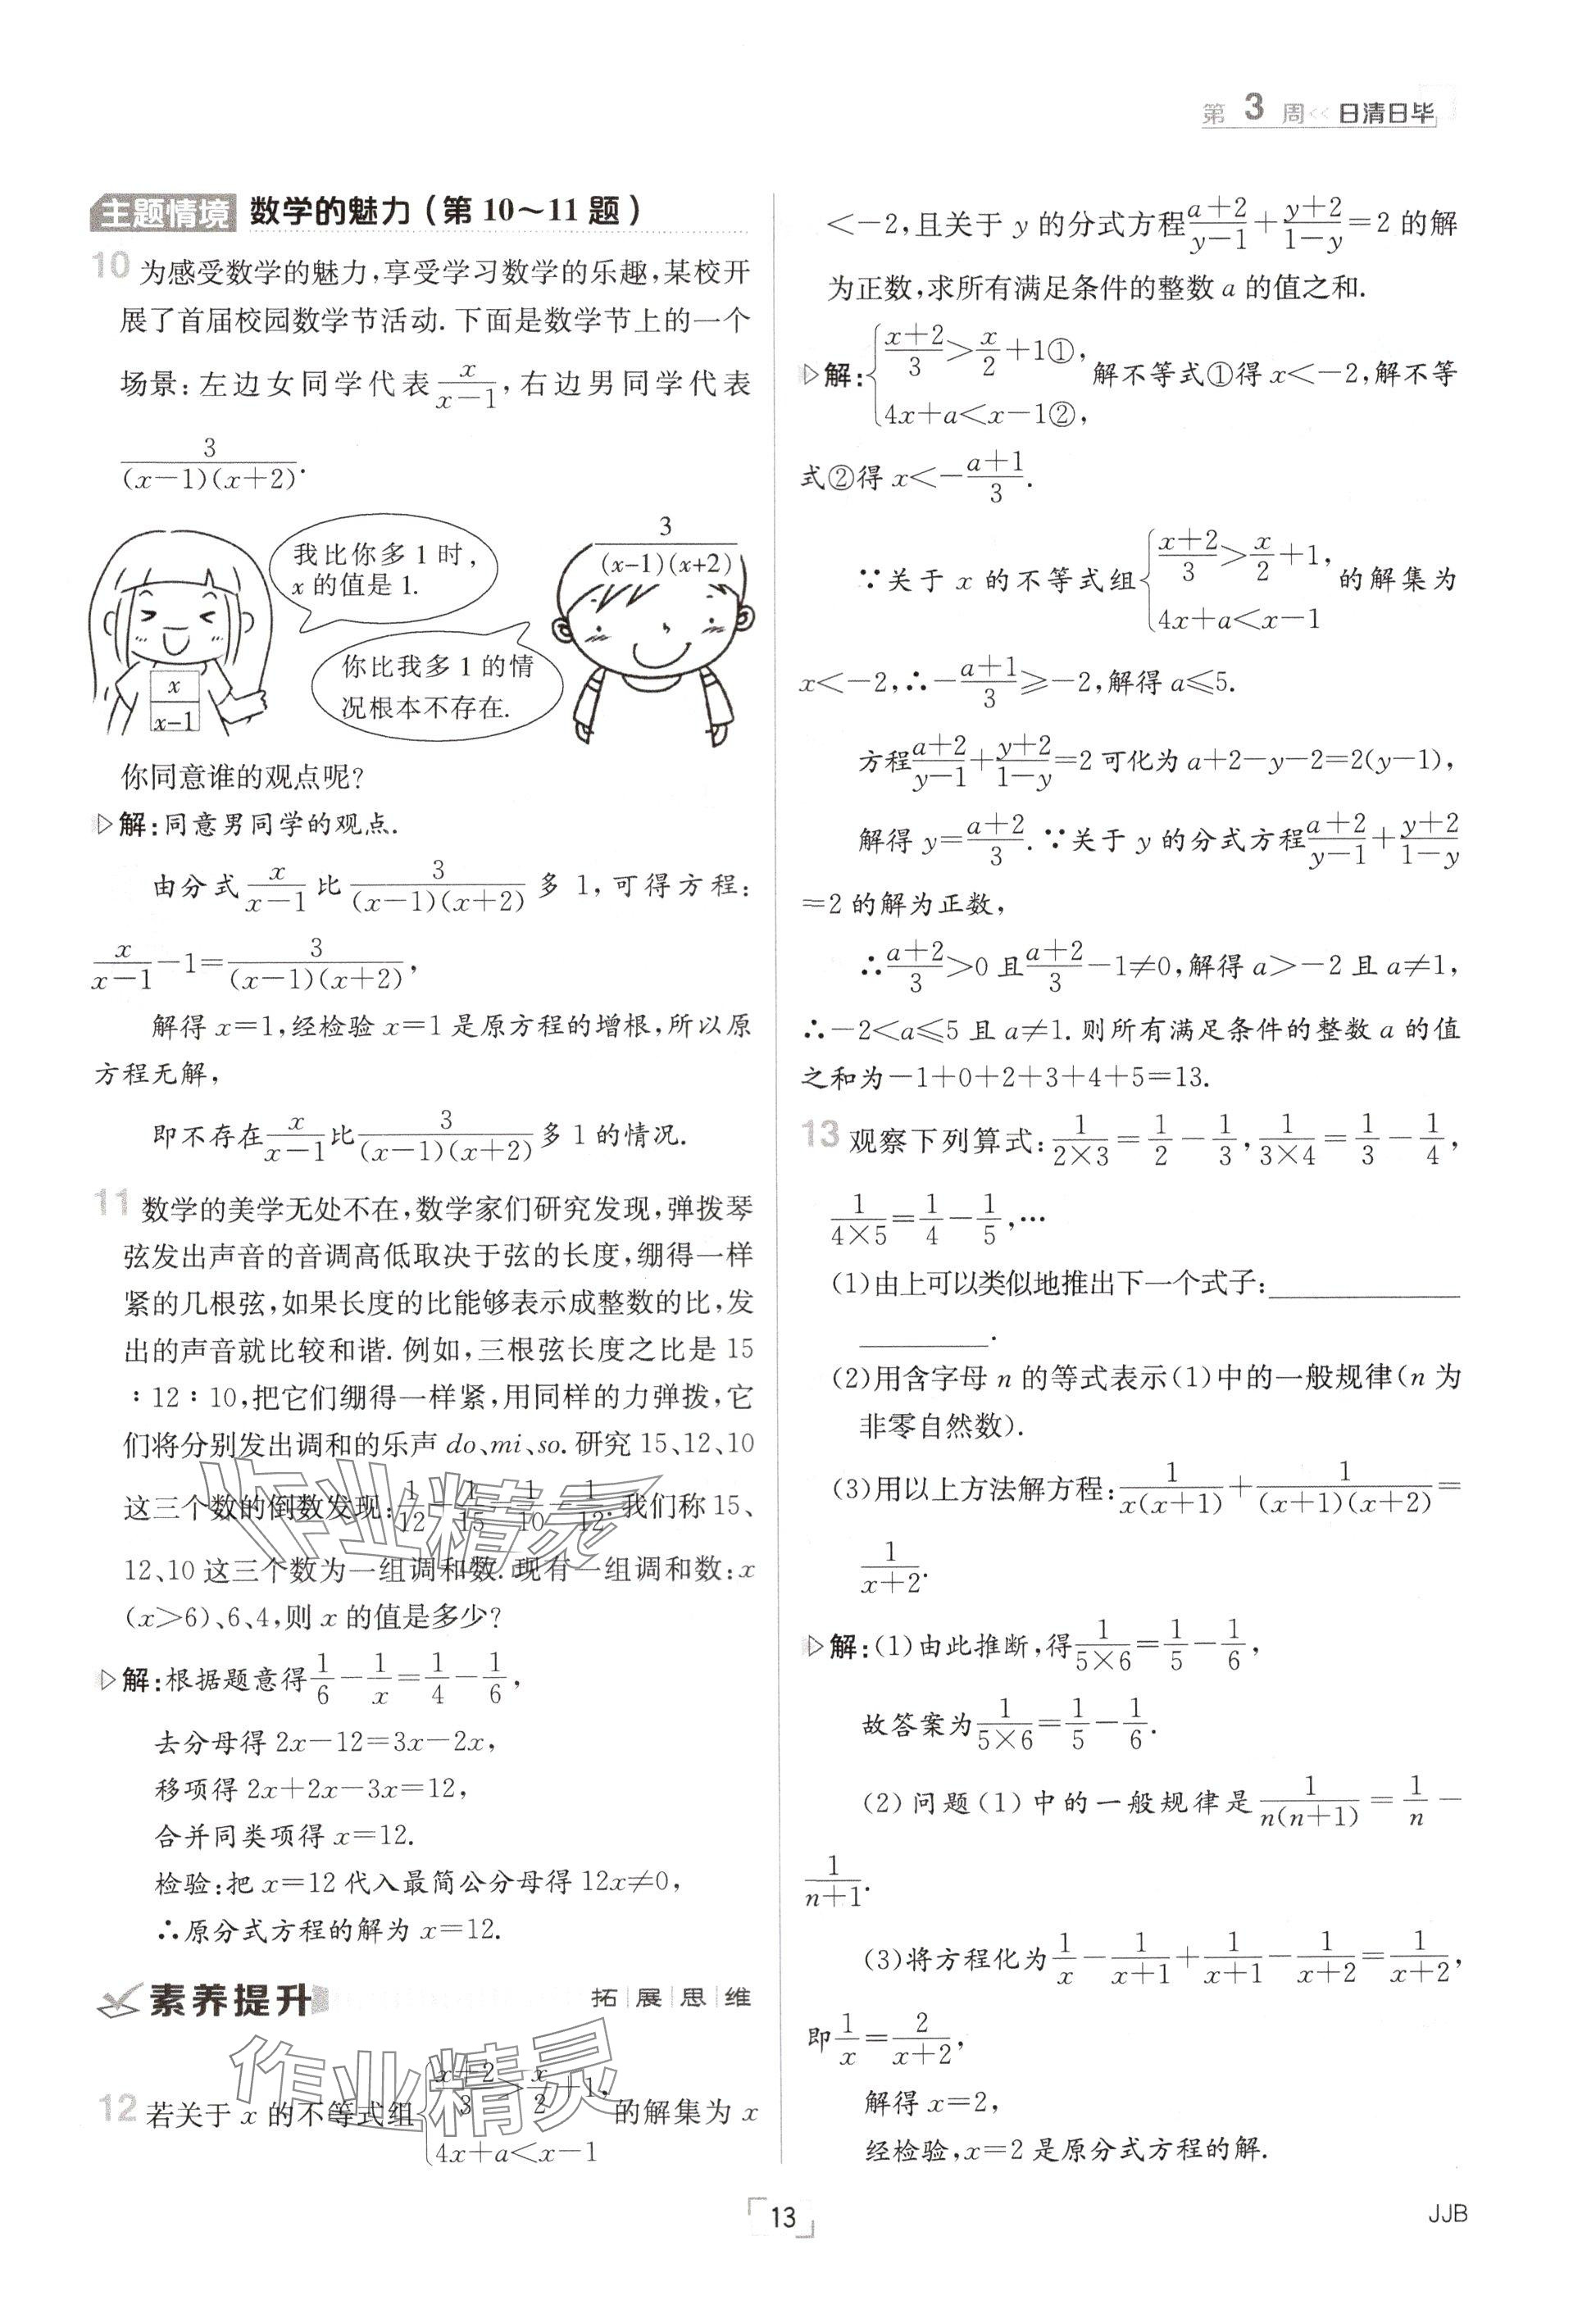 第 3 周<<日清日毕
主题情境 数学的魅力(第10～11题)
10 为感受数学的魅力,享受学习数学的乐趣,某校开
展了首届校园数学节活动.下面是数学节上的一个
场景:左边女同学代表x/(x-1),右边男同学代表
3/((x-1)(x+2)).
我比你多1时,
x的值是1.
3/((x-1)(x+2))
你比我多1的情
况根本不存在.
x/(x-1)
你同意谁的观点呢?
▷解:同意男同学的观点.
由分式x/(x-1)比3/((x-1)(x+2))多1,可得方程:
x/(x-1)-1=3/((x-1)(x+2)),
解得x=1,经检验x=1是原方程的增根,所以原
方程无解,
即不存在x/(x-1)比3/((x-1)(x+2))多1的情况.
11 数学的美学无处不在,数学家们研究发现,弹拨琴
弦发出声音的音调高低取决于弦的长度,绷得一样
紧的几根弦,如果长度的比能够表示成整数的比,发
出的声音就比较和谐.例如,三根弦长度之比是15
:12:10,把它们绷得一样紧,用同样的力弹拨,它
们将分别发出调和的乐声do、mi、so.研究15、12、10
这三个数的倒数发现:1/12-1/15=1/10-1/12.我们称15、
12、10这三个数为一组调和数.现有一组调和数:x
(x>6)、6、4,则x的值是多少?
▷解:根据题意得1/6-1/x=1/4-1/6,
去分母得2x-12=3x-2x,
移项得2x+2x-3x=12,
合并同类项得x=12.
检验:把x=12代入最简公分母得12x≠0,
∴原分式方程的解为x=12.
素养提升 拓|展|思|维
12 若关于x的不等式组{(x+2)/3>x/2+1, 4x+a<x-1 的解集为x
作业精灵
作业精灵
<-2,且关于y的分式方程(a+2)/(y-1)+(y+2)/(1-y)=2的解
为正数,求所有满足条件的整数a的值之和.
▷解:{(x+2)/3>x/2+1①, 4x+a<x-1②, 解不等式①得x<-2,解不等
式②得x<-(a+1)/3.
∵关于x的不等式组{(x+2)/3>x/2+1, 4x+a<x-1 的解集为
x<-2,∴-(a+1)/3≥-2,解得a≤5.
方程(a+2)/(y-1)+(y+2)/(1-y)=2可化为a+2-y-2=2(y-1),
解得y=(a+2)/3.∵关于y的分式方程(a+2)/(y-1)+(y+2)/(1-y)
=2的解为正数,
∴(a+2)/3>0且(a+2)/3-1≠0,解得a>-2且a≠1,
∴-2<a≤5且a≠1.则所有满足条件的整数a的值
之和为-1+0+2+3+4+5=13.
13 观察下列算式:1/(2×3)=1/2-1/3,1/(3×4)=1/3-1/4,
1/(4×5)=1/4-1/5,…
(1)由上可以类似地推出下一个式子:____________
________.
(2)用含字母n的等式表示(1)中的一般规律(n为
非零自然数).
(3)用以上方法解方程:1/(x(x+1))+1/((x+1)(x+2))=
1/(x+2).
▷解:(1)由此推断,得1/(5×6)=1/5-1/6,
故答案为1/(5×6)=1/5-1/6.
(2)问题(1)中的一般规律是1/(n(n+1))=1/n-
1/(n+1).
(3)将方程化为1/x-1/(x+1)+1/(x+1)-1/(x+2)=1/(x+2),
即1/x=2/(x+2),
解得x=2,
经检验,x=2是原分式方程的解.
13
JJB